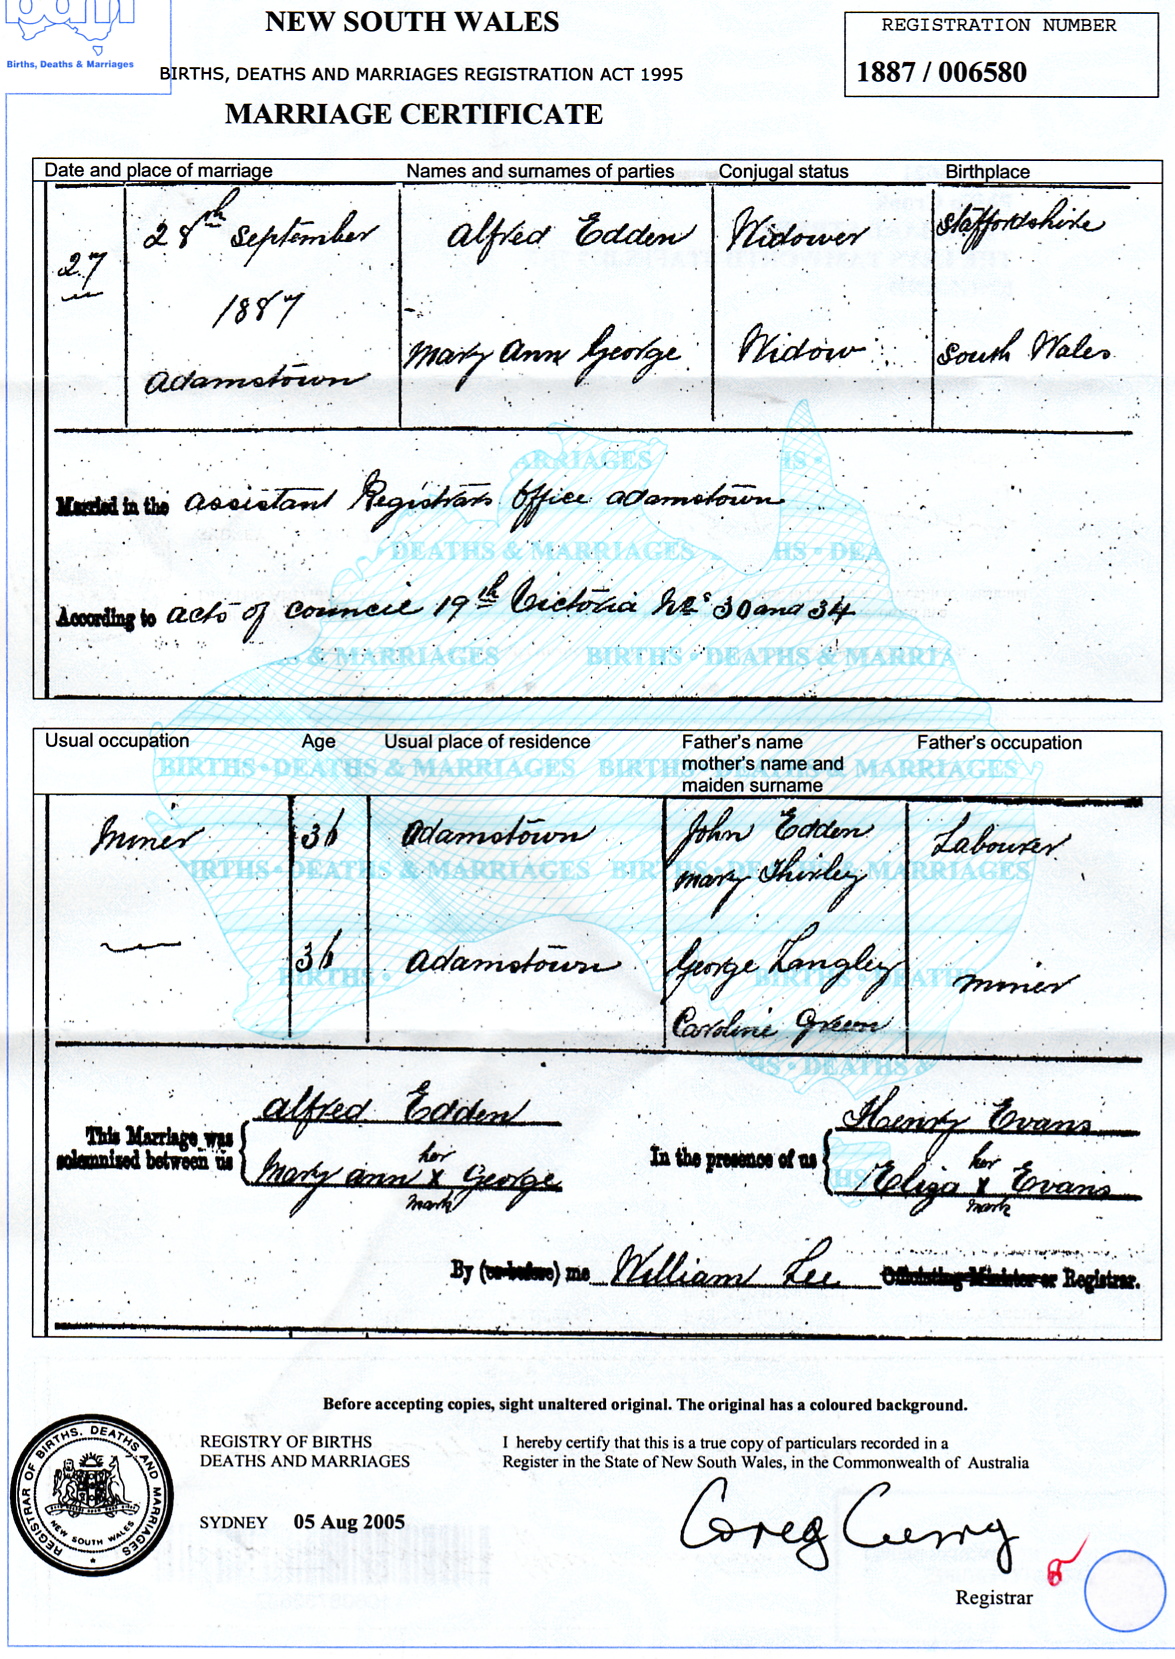 Births, Deaths & Marriages
NEW SOUTH WALES
BIRTHS, DEATHS AND MARRIAGES REGISTRATION ACT 1995
MARRIAGE CERTIFICATE
REGISTRATION NUMBER
1887 / 006580
Date and place of marriage Names and surnames of parties Conjugal status Birthplace
27 28th September Alfred Edden Widower Staffordshire
1887
Mary Ann George Widow South Wales
Adamstown
Married in the Assistant Registrars Office Adamstown
According to Acts of Council 19th Victoria Nos 30 and 34
Usual occupation Age Usual place of residence Father's name Father's occupation
mother's name and
maiden surname
Miner 36 Adamstown John Edden Labourer
Mary Shirley
36 Adamstown George Langley Miner
Caroline Green
This Marriage was solemnized between us
Alfred Edden
Mary Ann her X mark George
In the presence of us
Henry Evans
Eliza her X mark Evans
By (or before) me William Lee Officiating Minister or Registrar.
Before accepting copies, sight unaltered original. The original has a coloured background.
REGISTRAR OF BIRTHS, DEATHS AND MARRIAGES
NEW SOUTH WALES
REGISTRY OF BIRTHS
DEATHS AND MARRIAGES
SYDNEY 05 Aug 2005
I hereby certify that this is a true copy of particulars recorded in a
Register in the State of New South Wales, in the Commonwealth of Australia
Greg Curry
Registrar
BIRTHS • DEATHS & MARRIAGES